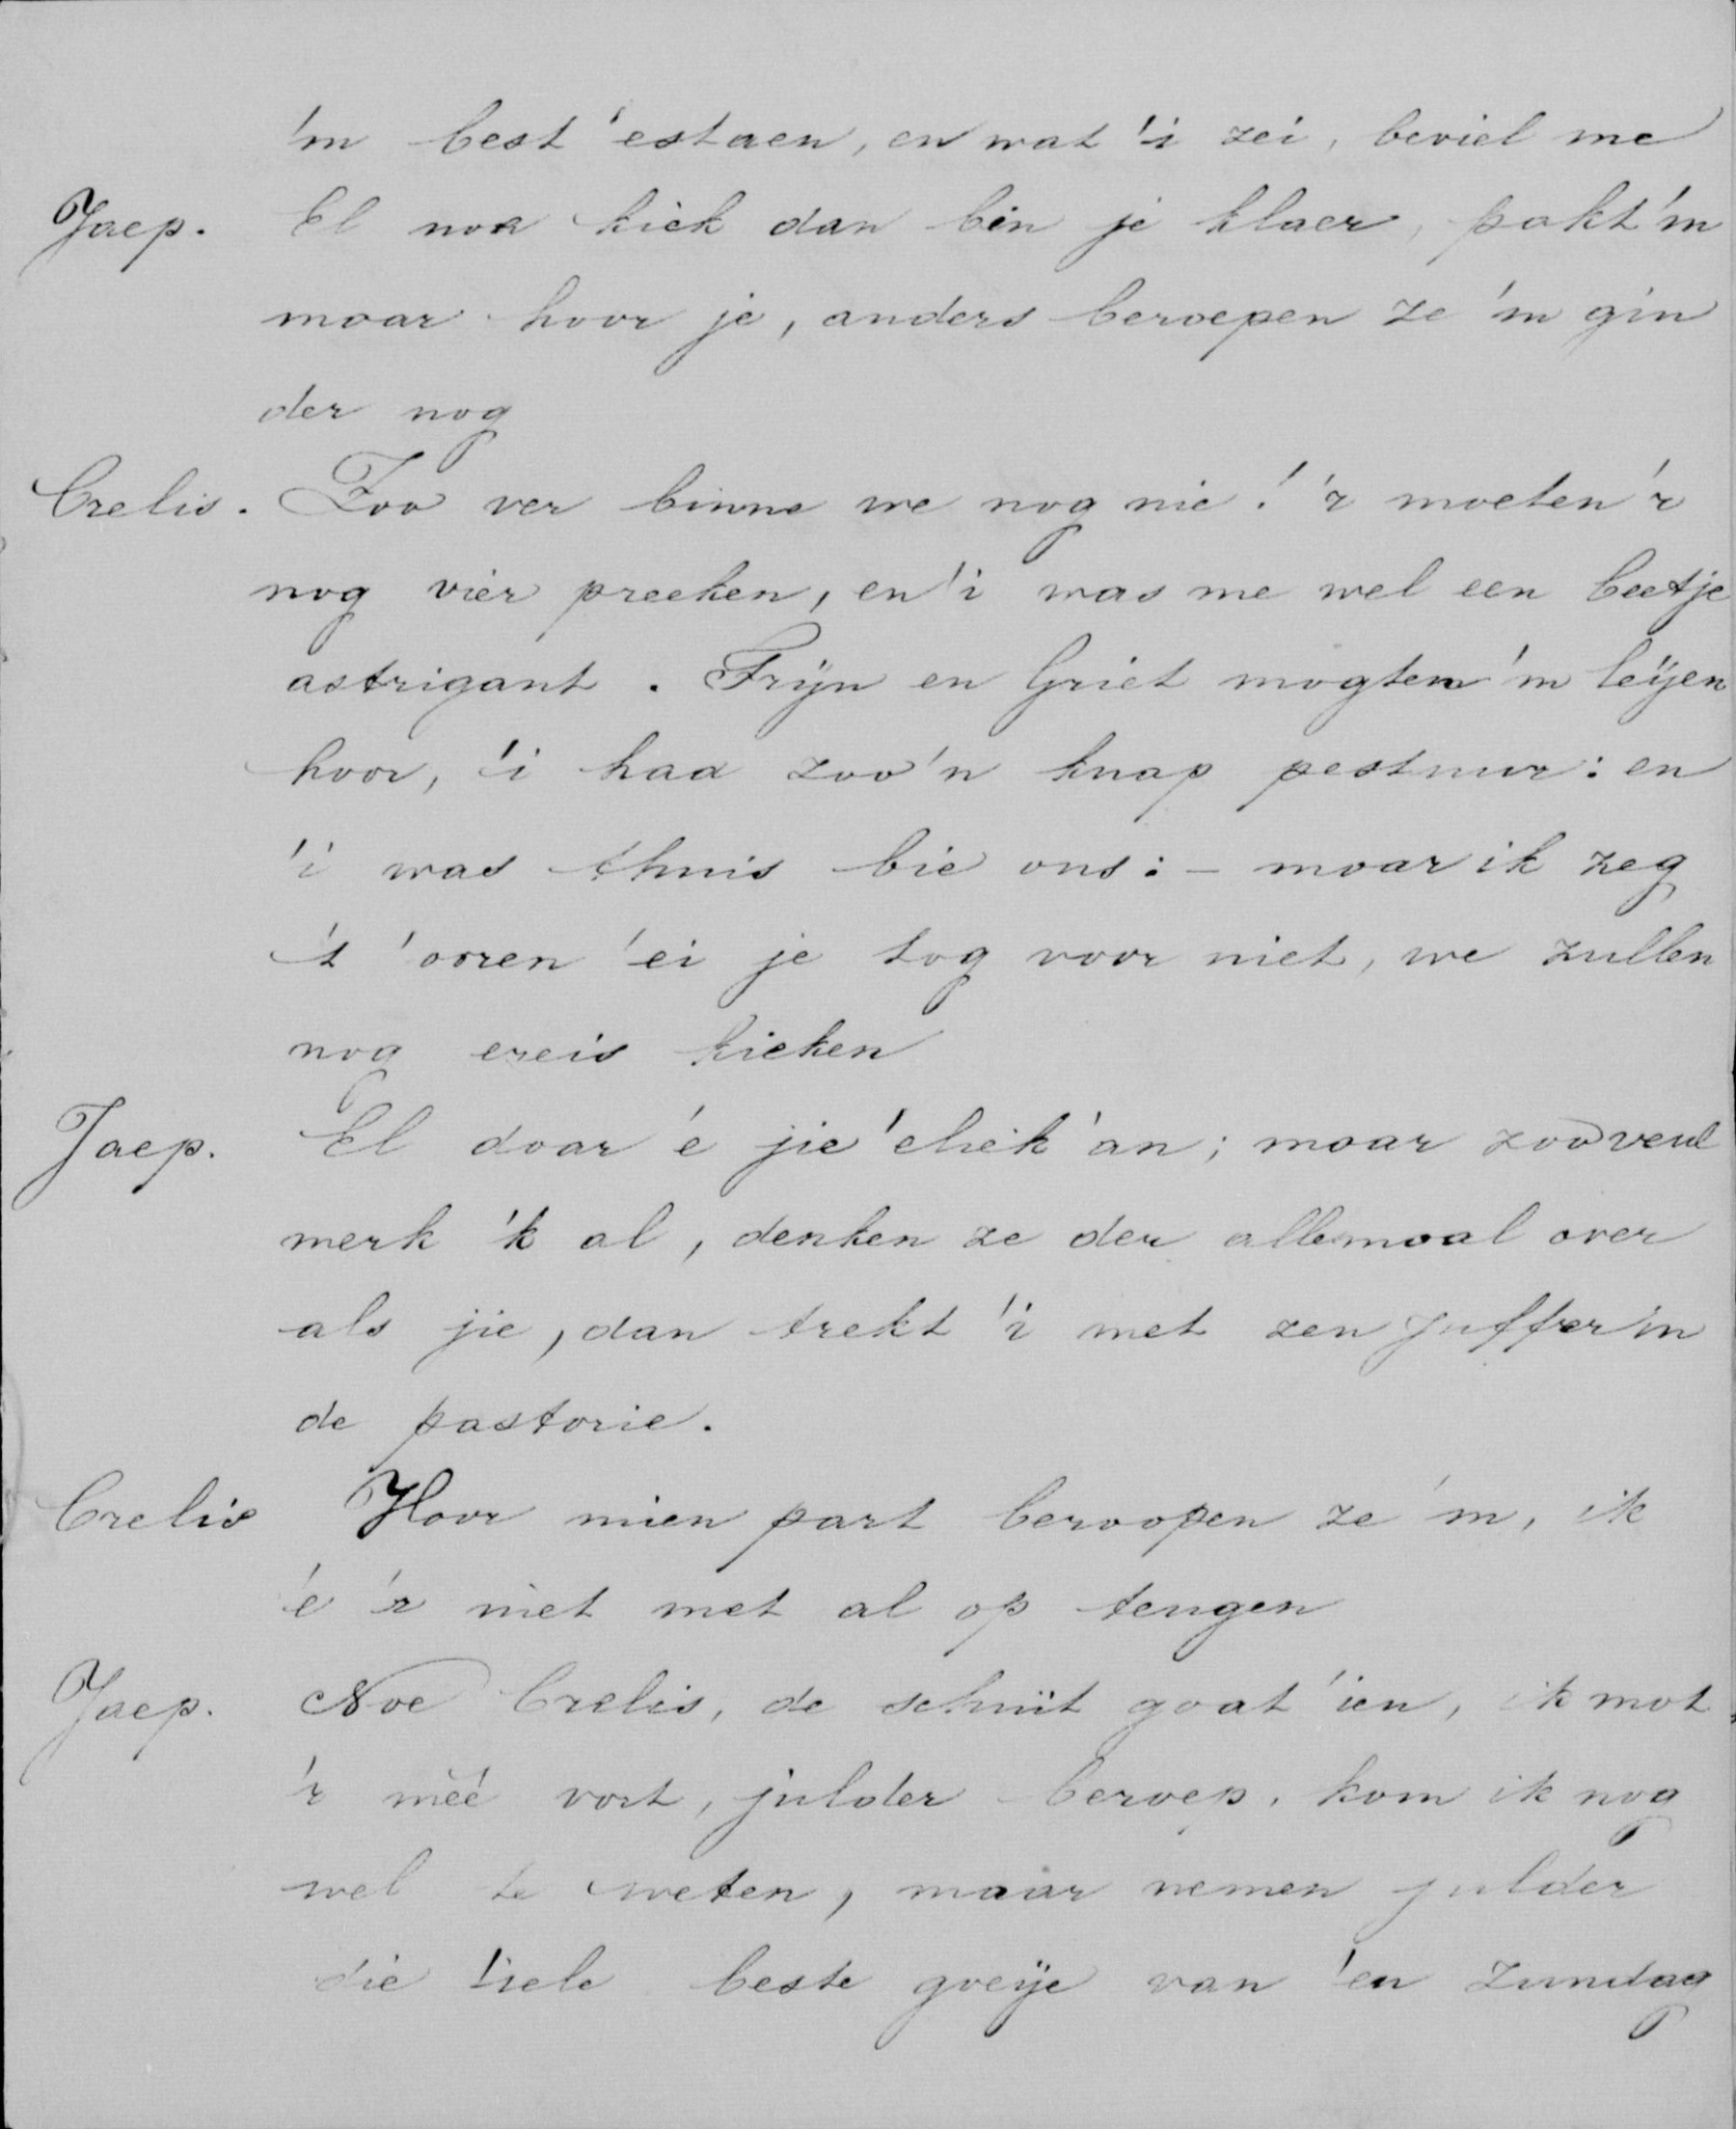 'm best 'estaen, en wat 'i zei, beviel me
Jaep. El noe kiek dan bin je klaer, pakt 'm
moar hoor je, anders beroepen ze 'm gin
der nog
Crelis. Zoo ver binne we nog nie! 'r moeten 'r
nog vier preeken, en 'i was me wel een beetje
astrigant. Trijn en Griet mogten 'm leijen
hoor, 'i haa zoo'n knap pestuur: en
'i was thuis bie ons: - moar ik zeg
't 'ooren 'ei je tog voor niet, we zullen
nog ereis kieken
Jaep. El doar 'e jie 'eliek 'an; moar zooveul
merk 'k al, denken ze der allemoal over
als jie, dan trekt 'i met zen juffer in
de pastorie.
Crelis Hoor mien part beroopen ze 'm, ik
'e 'r niet met al op teugen
Jaep. Noe Crelis, de schuit goat 'ien, ik mot
'r meê vort, julder beroep. kom ik nog
wel te weten, maar nemen julder
die 'iele beste goeije van 'en Zundag